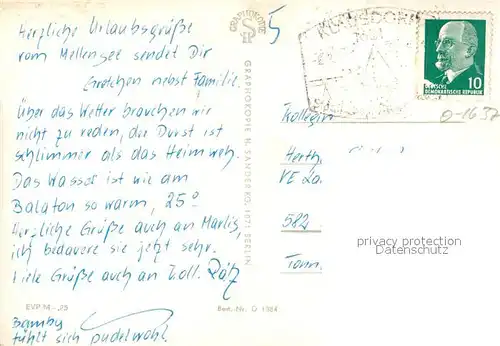 Herzliche Urlaubsgrüße
vom Mellensee sendet Dir
Gretchen nebst Familie.
Über das Wetter brauchen wir
nicht zu reden, der Durst ist
schlimmer als das Heimweh.
Das Wasser ist wie am
Balaton so warm, 25°
Herzliche Grüße auch an Marlis,
ich bedaure sie jetzt sehr.
Viele Grüße auch an Koll.
EVP M -,25
Bamby
fühlt sich pudelwohl.
GRAPHOKOPIE
GRAPHOKOPIE H. SANDERG, 1071 BERLIN
Best.-Nr. O 1364
5
DEUTSCHE
DEMOKRATISCHE REPUBLIK
10
O-1637
Kollegin
Herth
VE
582
Tann.
privacy protection
Datenschutz